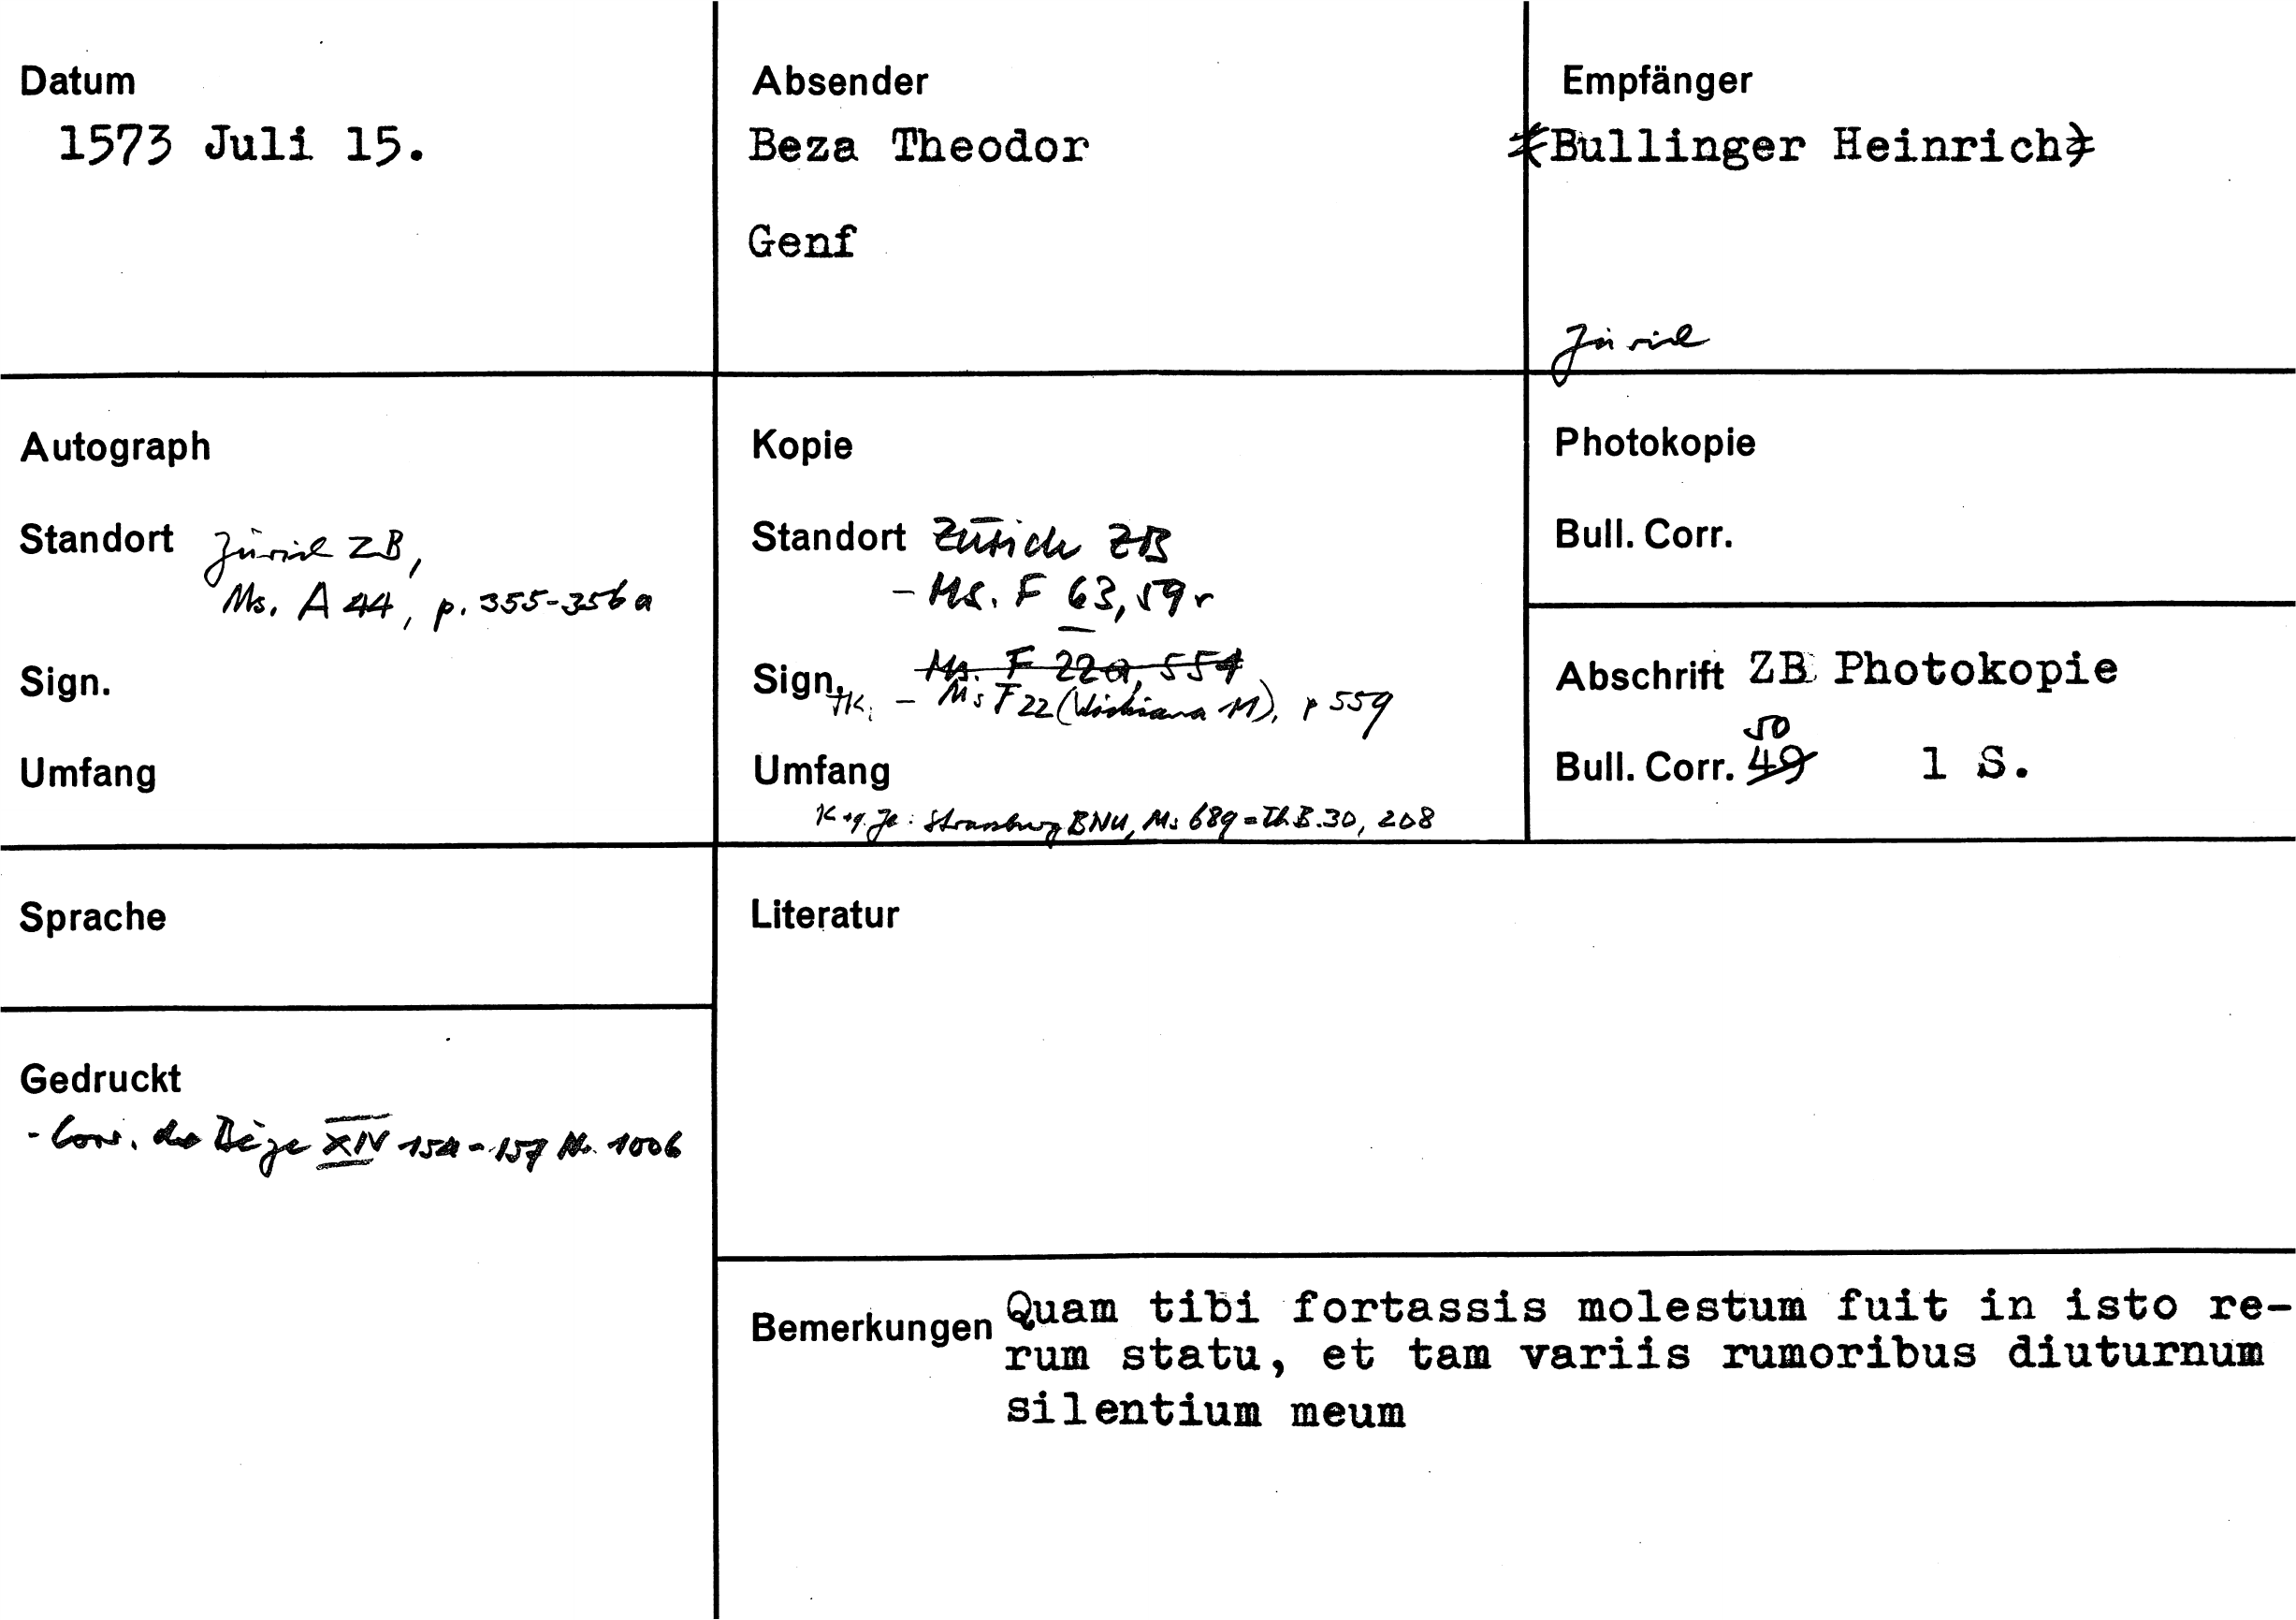 Datum
1573 Juli 15.
Absender
Beza Theodor
Genf
Empfänger
(Bullinger Heinrich)
Zürich
Autograph
Standort Zürich ZB,
Ms. A 44, p. 355-356a
Sign.
Umfang
Kopie
Standort Zürich ZB
- Ms. F 63, 59r
Ms. F 22a, 554
Sign. - Ms F 22 (Wickiana 11), p 559
Umfang
Strassburg BNU, Ms 689 = Th B.30, 208
Photokopie
Bull. Corr.
Abschrift ZB Photokopie
50
Bull. Corr. 49 1 S.
Sprache
Literatur
Gedruckt
- Corr. de Bèze XIV 154-157 Nr. 1006
Bemerkungen Quam tibi fortassis molestum fuit in isto re-
rum statu, et tam variis rumoribus diuturnum
silentium meum